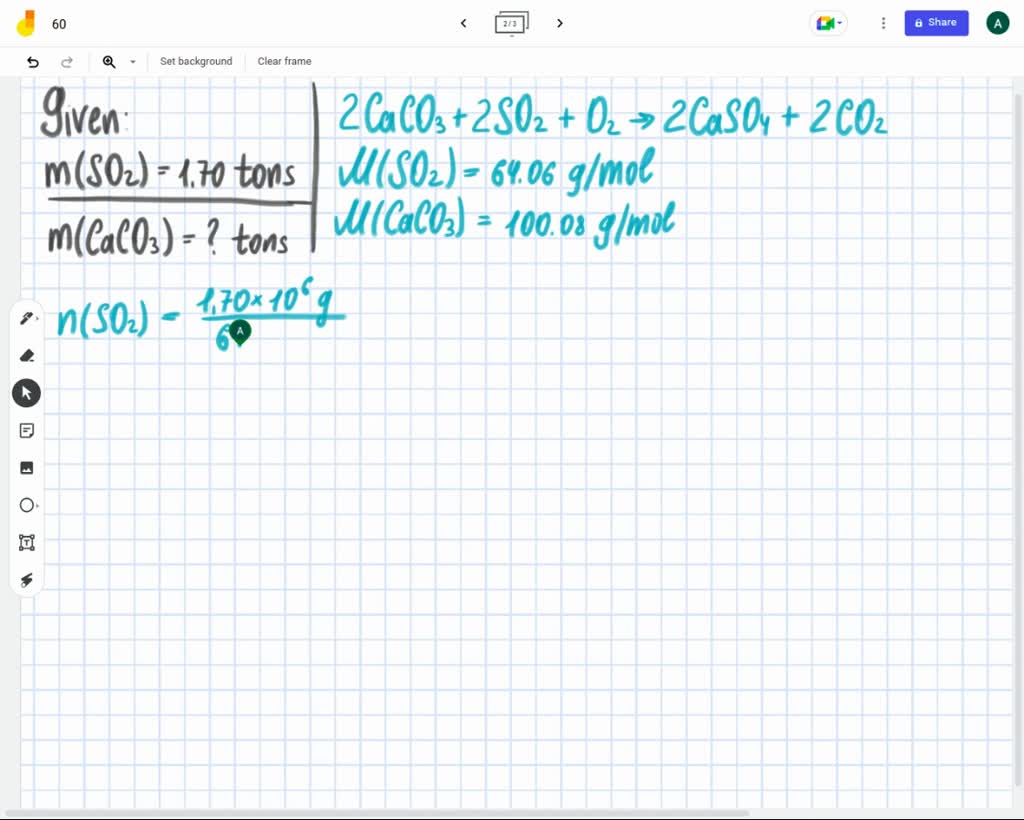 60
2/3
Share
A
Set background
Clear frame
Given:
m(SO₂) = 1.70 tons
m(CaCO₃) = ? tons
2CaCO₃ + 2SO₂ + O₂ → 2CaSO₄ + 2CO₂
M(SO₂) = 64.06 g/mol
M(CaCO₃) = 100.08 g/mol
n(SO₂) = 1.70 × 10⁶ g
6
A
T